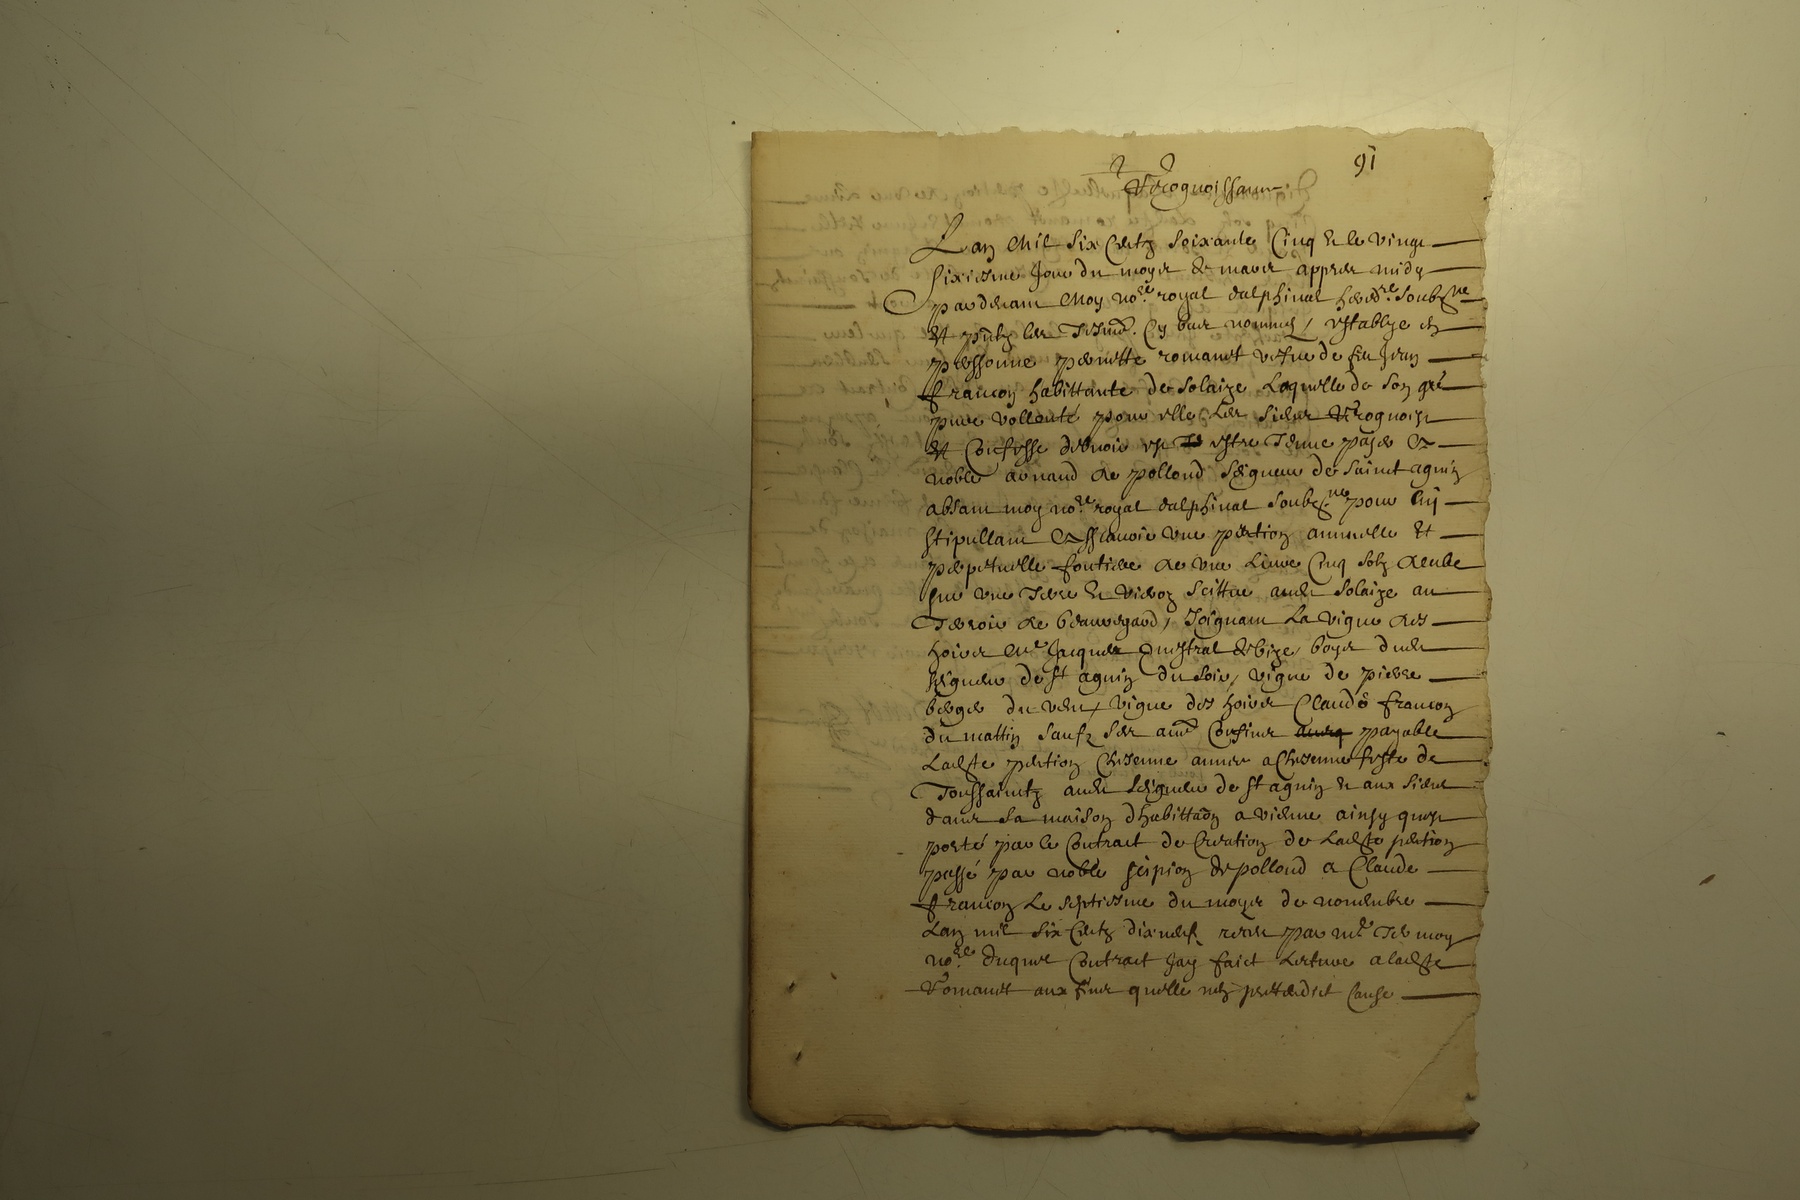 91
Recognoissance
Lan Mil six Centz soixante Cinq & le vingt
sixiesme Jour du moys de mars appres midy
par devant Moy no.re royal dalphinal hered.re soubz.ne
et pntz les Tesmo. Cy bas nommes, establye en
pressonne pernette romanet vefve de feu Jean
francon habittante de Solaize Laquelle de son gré
pure vollonté pour elle Les siens Recognoist
et Confesse debvoir et estre Tenue payer a
noble arnaud de pollond Seigneur de Sainct agnin
absant moy no.re royal dalphinal soubz.ne pour luy
stipullant Assavoir une pention annuelle et
perpetuelle fontiere de une Livre Cinq solz deube
sur une Terre & vieroz Scittue audt Solaize au
Terroir de beauregard, Joignant La vigne des
hoirs Me Jacques mestral de bize, boys dudt
seigneur de st agnin du soir, vigne de pierre
berger du vent, vigne des hoirs Claude francon
du mattin saufz ses aues Confins payable
Ladte pention Chesenne annee a Chesenne feste de
Toussainctz audt seigneur de st agnin & aux siens
dans sa maison dhabittaon a vienne ainsy quest
porté par le Contract de Creation de Ladte pention
passé par noble scipion de pollond a Claude
francon Le septiesme du moys de novembre
Lan mil six Centz dix neuf receu par me
no.re duquel Contract Jay faict Lecture a ladte
Romanet aux fins quelle nen prettendict Cause